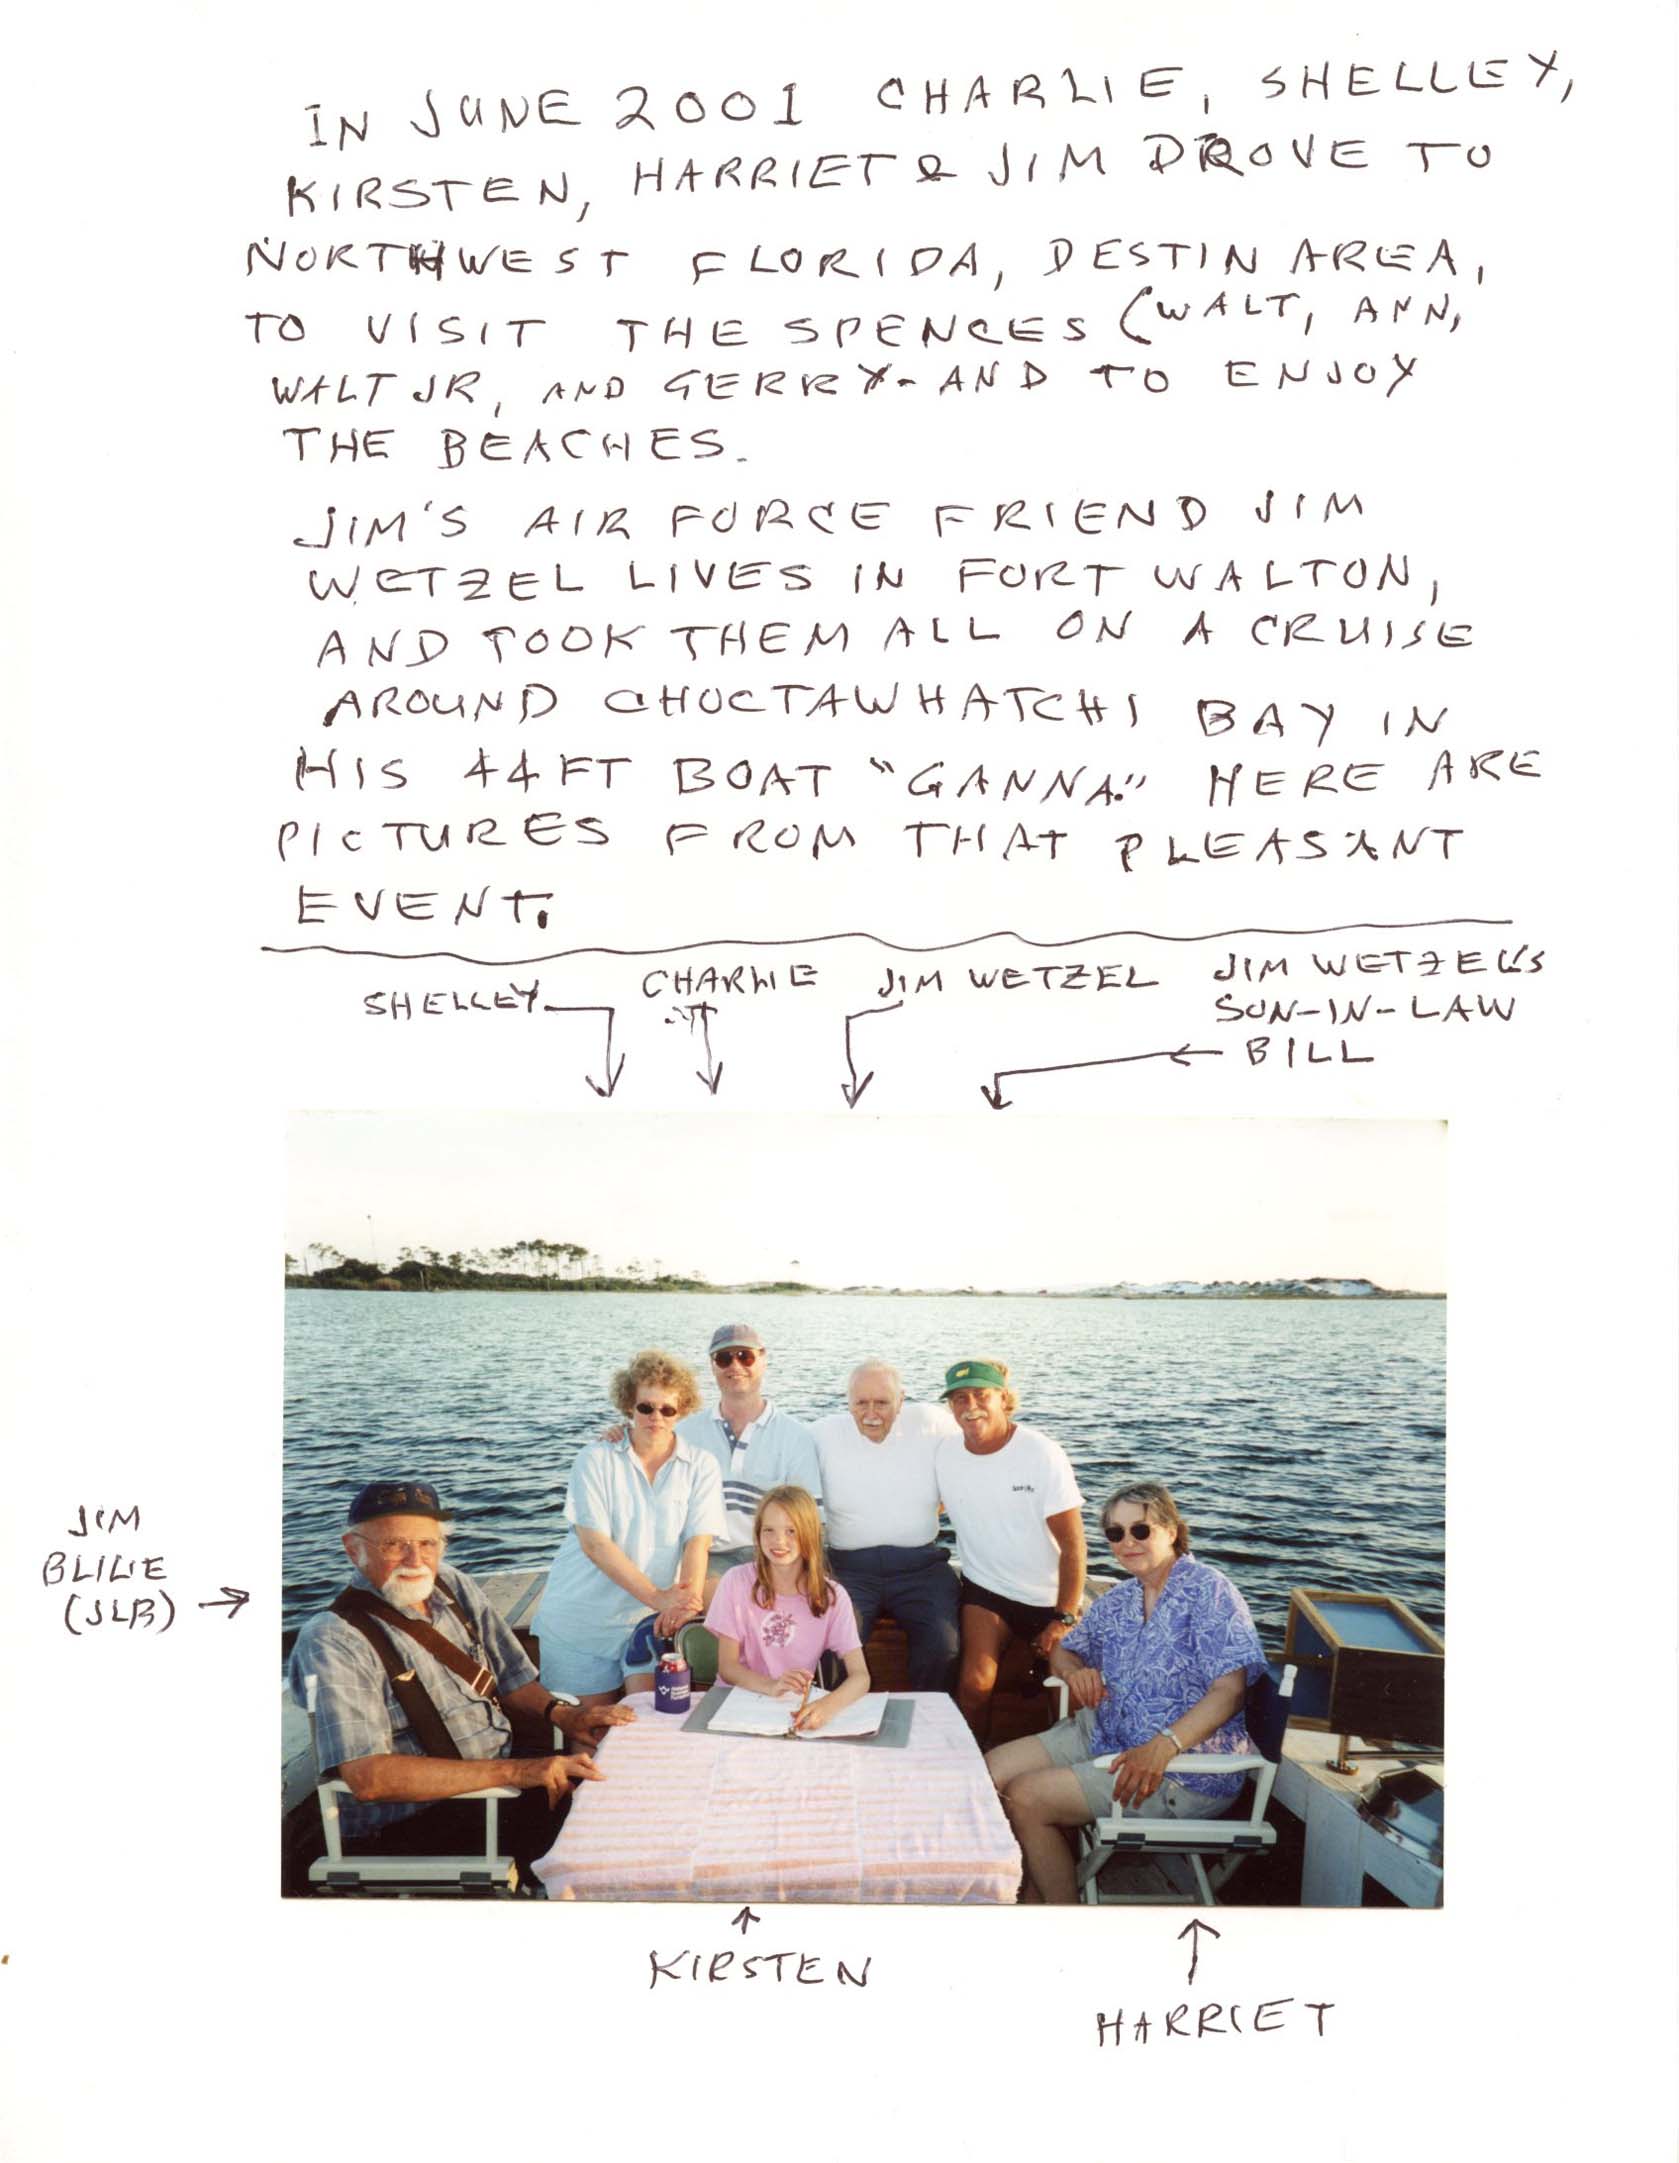 IN JUNE 2001 CHARLIE, SHELLEY,
KIRSTEN, HARRIET & JIM DROVE TO
NORTHWEST FLORIDA, DESTIN AREA,
TO VISIT THE SPENCES (WALT, ANN,
WALT JR, AND GERRY - AND TO ENJOY
THE BEACHES.
JIM'S AIR FORCE FRIEND JIM
WETZEL LIVES IN FORT WALTON,
AND TOOK THEM ALL ON A CRUISE
AROUND CHOCTAWHATCHI BAY IN
HIS 44FT BOAT "GANNA." HERE ARE
PICTURES FROM THAT PLEASANT
EVENT.
SHELLEY
CHARLIE
JIM WETZEL
JIM WETZEL'S
SON-IN-LAW
BILL
JIM
BLILIE
(JLB)
KIRSTEN
HARRIET